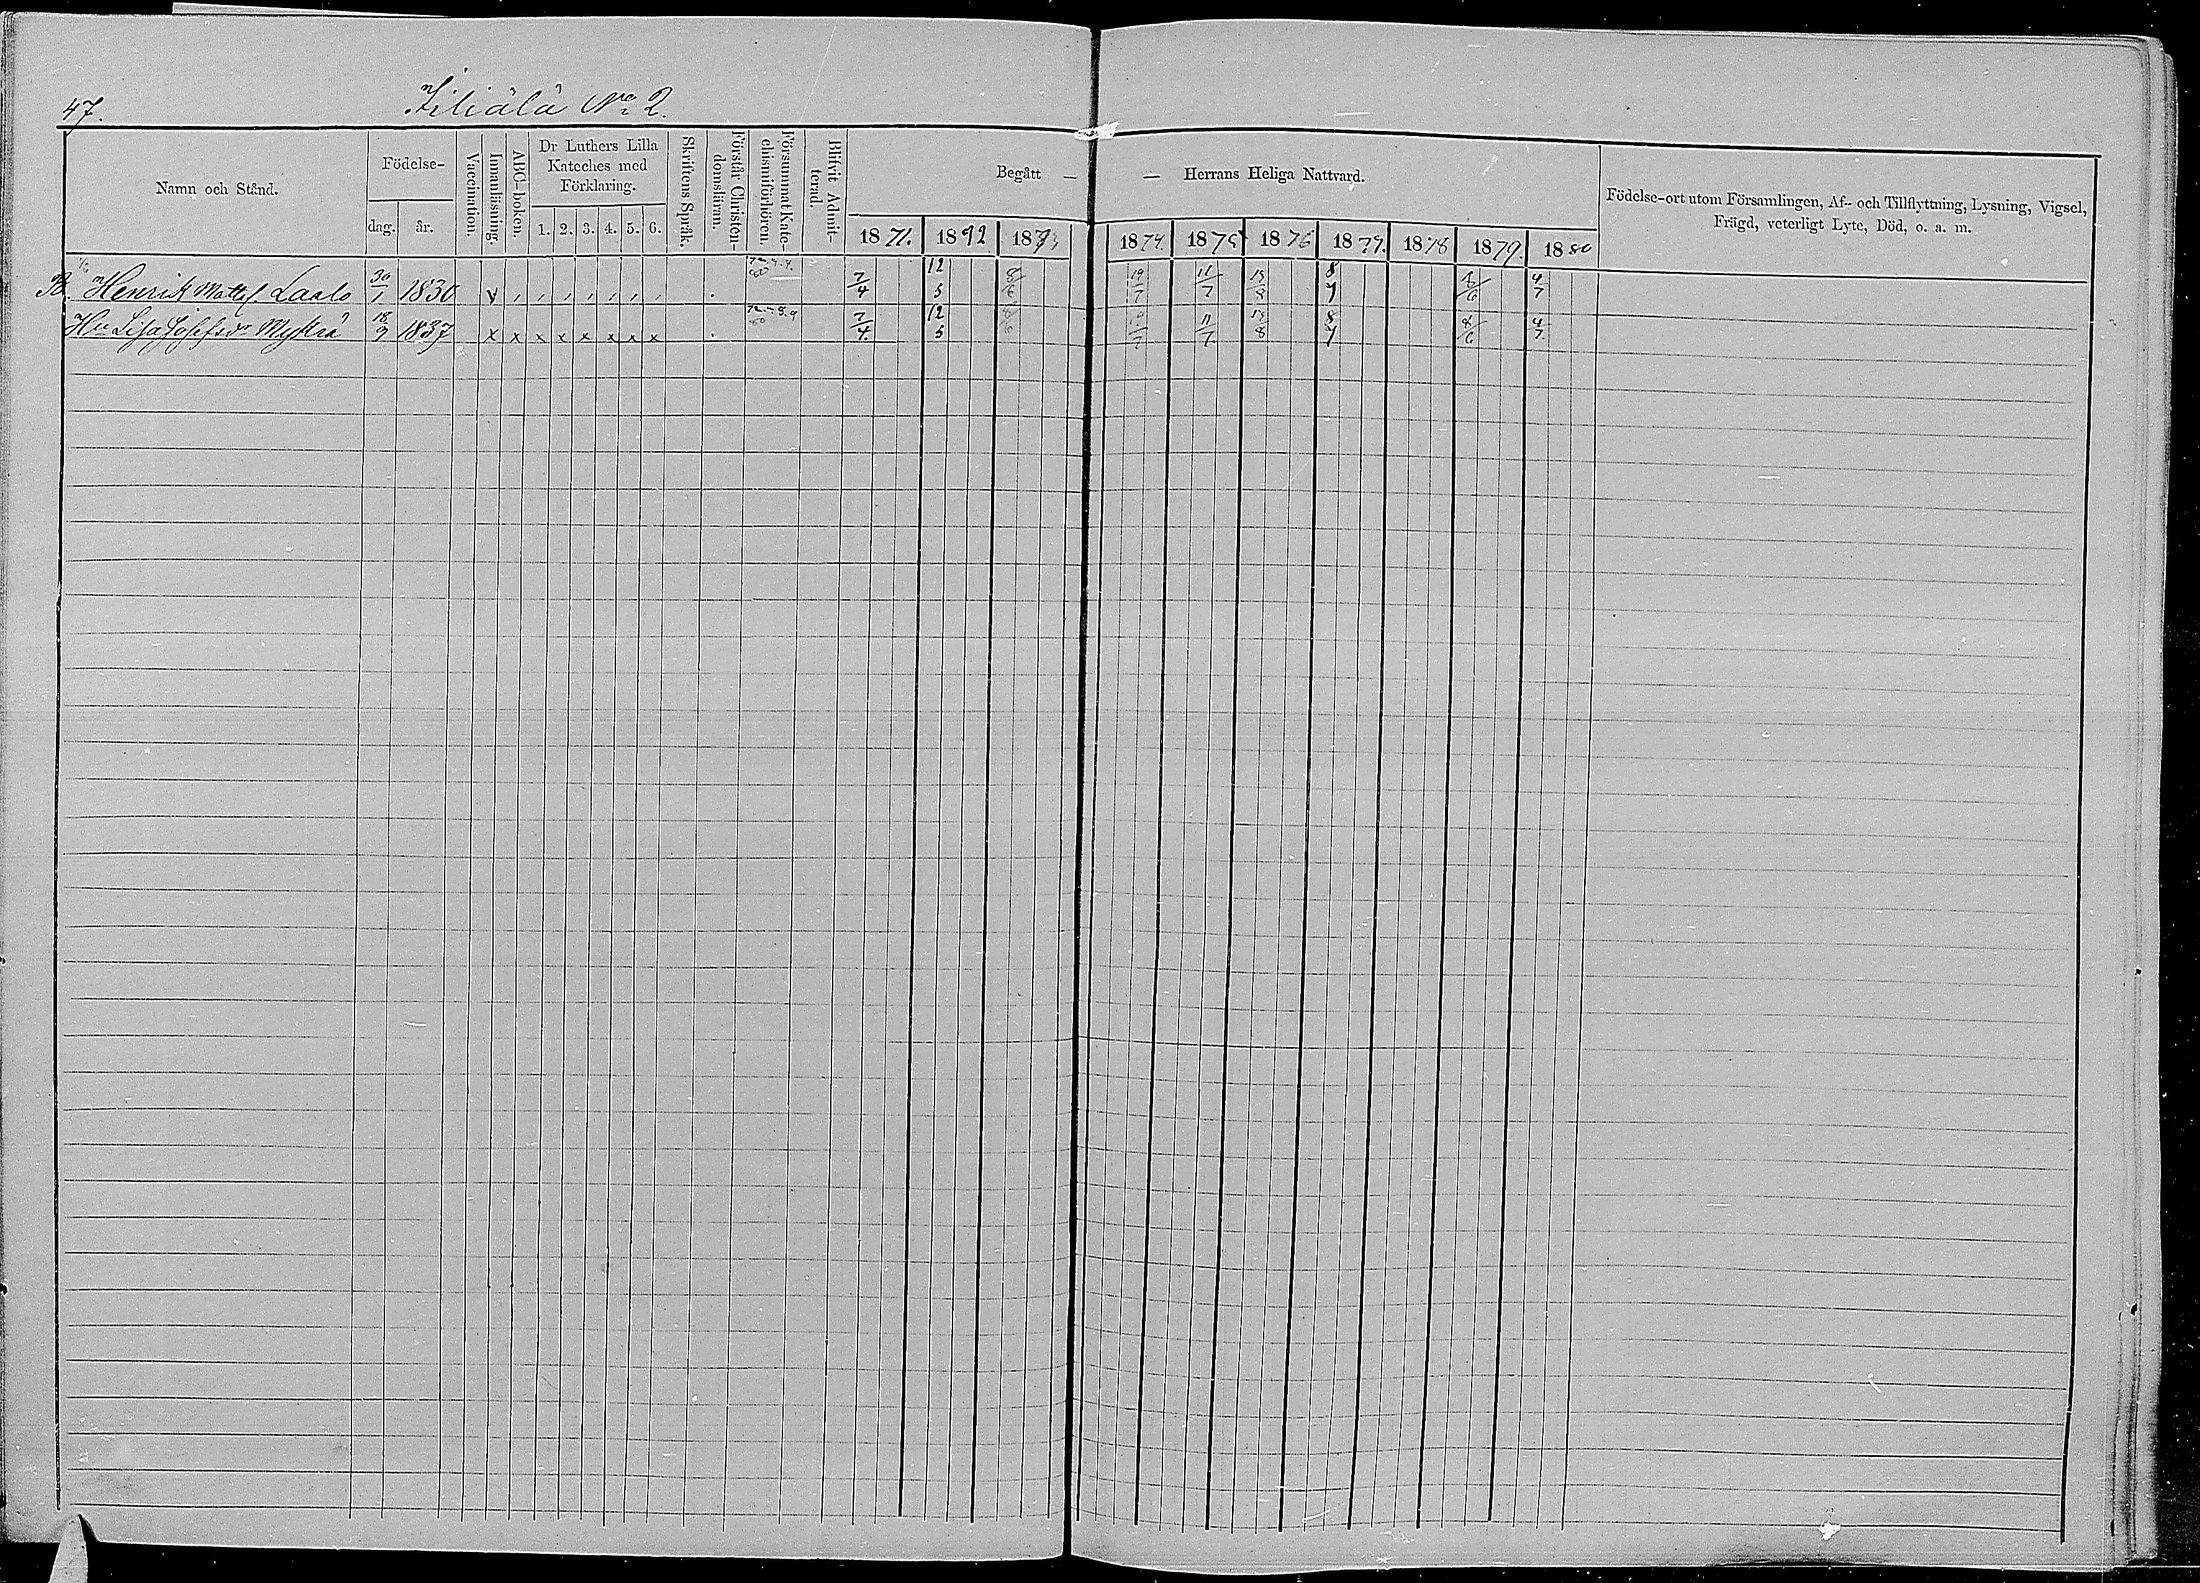 47.
Kiliälä No 2.
Namn och Stånd.
Födelse-
dag.
år.
Vaccination.
Innanläsning.
ABC-boken.
Dr Luthers Lilla
Kateches med
Förklaring.
1. 2. 3. 4. 5. 6.
Skriftens Språk.
Förstår Christen-
domsläran.
Försummat Kate-
chismiförhören.
Blifvit Admit-
terad.
Begått — — Herrans Heliga Nattvard.
1871. 1872 1873 1874 1875 1876 1877. 1878 1879. 1880
Födelse-ort utom Församlingen, Af- och Tillflyttning, Lysning, Vigsel,
Frägd, veterligt Lyte, Död, o. a. m.
B. Henrik Mattsf. Laalo 30/1 1830 v , , , , , , , . 7/4 12/5 8/6 19/7 11/7 13/8 8/7 8/6 4/7
Hu Lisa Josefsdr Myllrä 18/9 1837 x x x x x x x x . 7/4. 12/5 8/6 19/7 11/7 13/8 8/7 8/6 4/7.